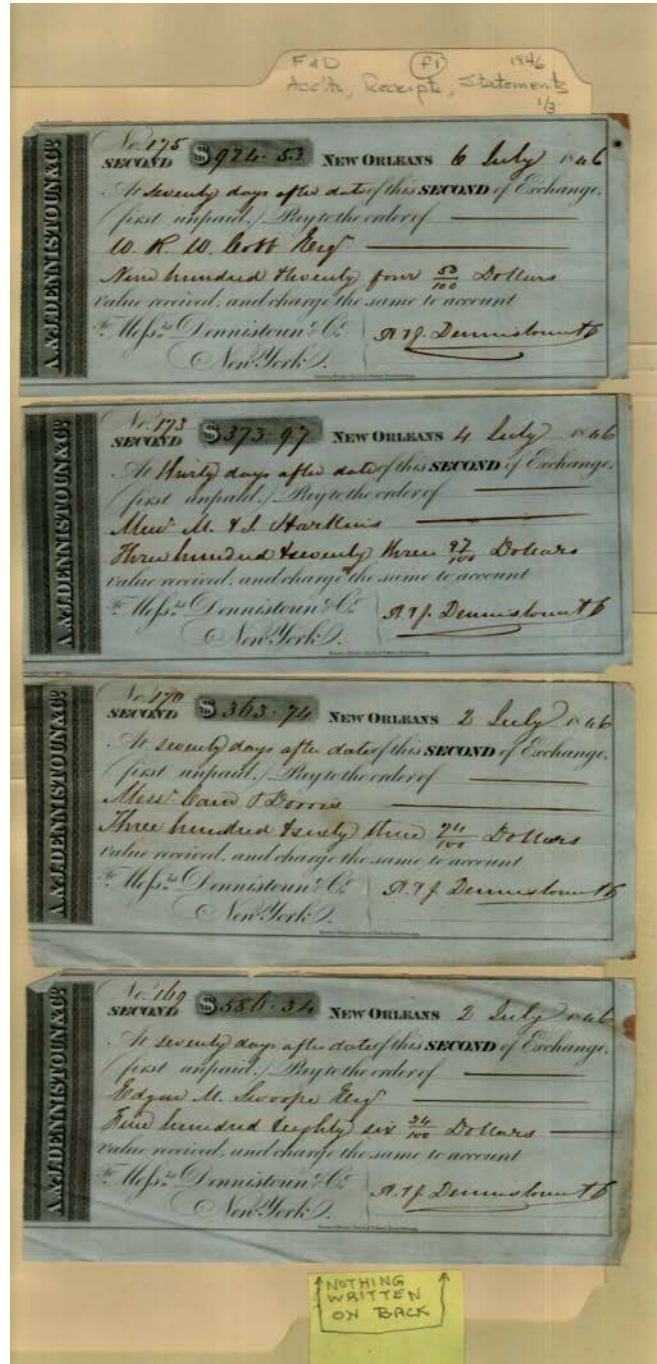 F&D (f1) 1846
Acc'ts, Receipts, Statements
1/3
A. & J. DENNISTOUN & Co.
No. 175
SECOND $924.53 NEW ORLEANS 6 July 1846
At seventy days after date of this SECOND of Exchange,
(first unpaid.) Pay to the order of
W. R. W. Cobb Esqr
Nine hundred & twenty four 53/100 Dollars
value received, and charge the same to account
To Messrs. Dennistoun & Co. A & J. Dennistoun & Co
New York.
A. & J. DENNISTOUN & Co.
No. 173
SECOND $373.97 NEW ORLEANS 4 July 1846
At thirty days after date of this SECOND of Exchange,
(first unpaid.) Pay to the order of
Messrs. M. & I. Harkins
Three hundred & seventy three 97/100 Dollars
value received, and charge the same to account
To Messrs. Dennistoun & Co. A & J. Dennistoun & Co
New York.
A. & J. DENNISTOUN & Co.
No. 170
SECOND $363.74 NEW ORLEANS 2 July 1846
At seventy days after date of this SECOND of Exchange,
(first unpaid.) Pay to the order of
Messrs.
Three hundred & sixty three 74/100 Dollars
value received, and charge the same to account
To Messrs. Dennistoun & Co. A & J. Dennistoun & Co
New York.
A. & J. DENNISTOUN & Co.
No. 169
SECOND $586.34 NEW ORLEANS 2 July 1846
At seventy days after date of this SECOND of Exchange,
(first unpaid.) Pay to the order of
Edgar M. Swoope Esqr
Five hundred & eighty six 34/100 Dollars
value received, and charge the same to account
To Messrs. Dennistoun & Co. A & J. Dennistoun & Co
New York.
NOTHING
WRITTEN
ON BACK